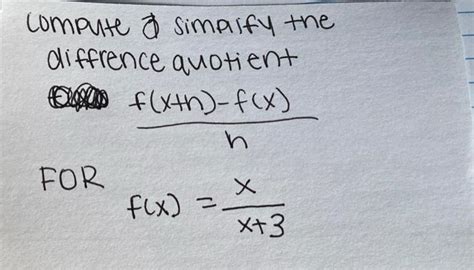 compute & simplify the
diffrence quotient
f(x+h)-f(x)
h
FOR
f(x) = x
x+3